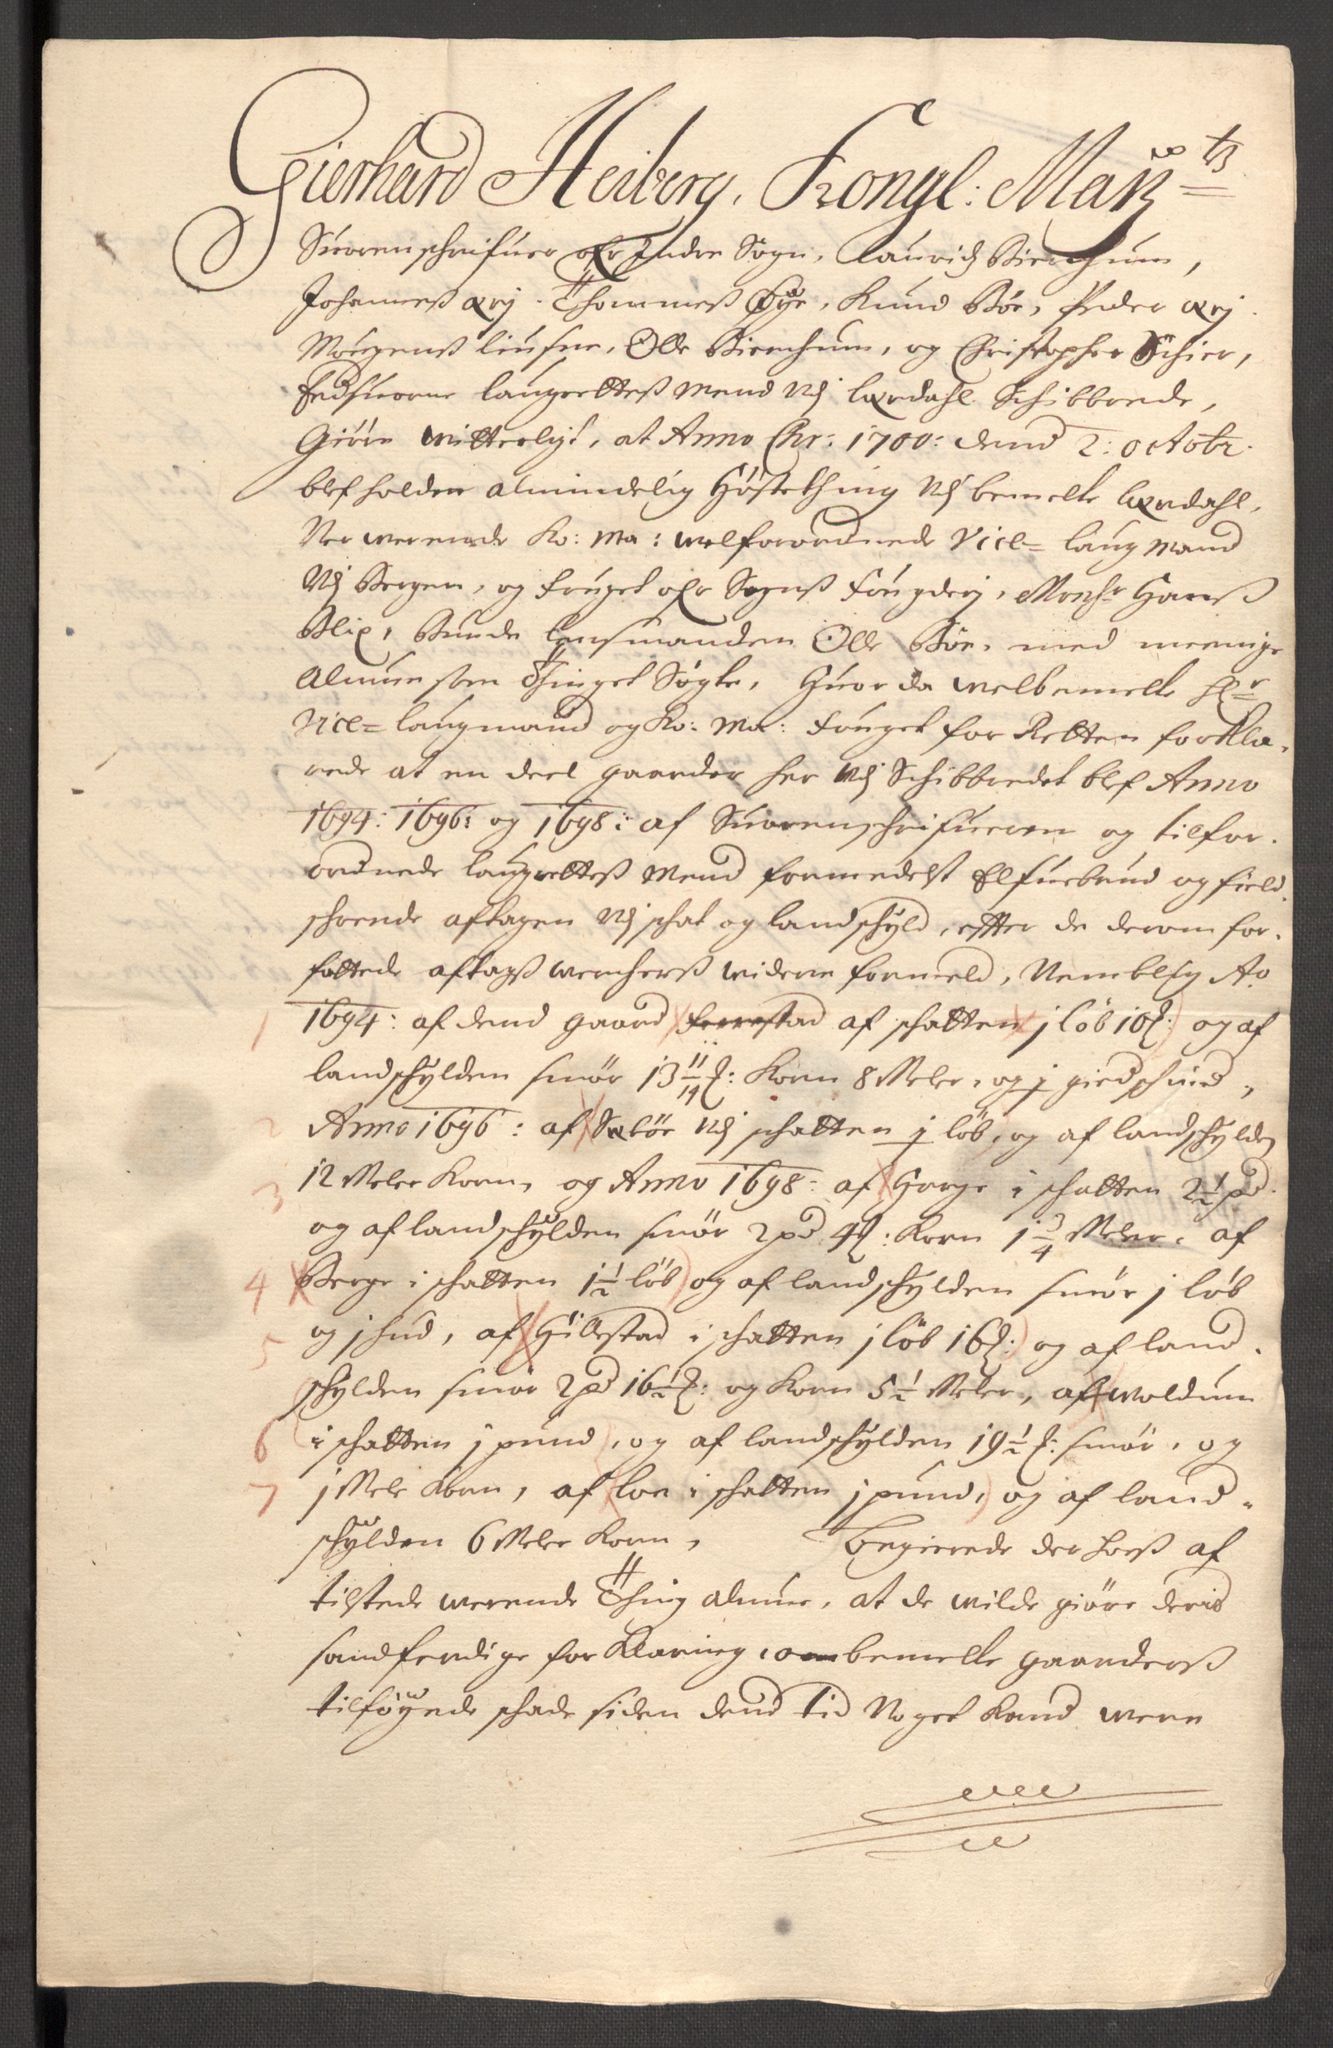 Gierhard Heiberg, Kongl: Maÿ<sup>ts</sup>
Suorenschrifuer ofr Indre Sogn, Lauridz Bierchum,
Johanneß Ærj, Thommeß Øye, Knud Böe, Peder Ærj
Mongenß Liusne, Olle Bierchum, og Christopher Schier,
Edsuorne laugretteß Mend udj Lærdahl Schibbrede,
Giöre witterligt, at Anno Chr: 1700: dend 2: octobr.
blef holden almindelig Höstething udj bemelte Lærdahl,
Nerwerende Ko: Ma: welforordnede Vice= laugmand
udj Bergen, og fouget ofr Sognß fougderj, Monsr Hanß
Blix, Bunde lensmanden Olle Böe, med meenige
Almue som Thinget Sögte, Huor da welbemelte Hr
Vice= laugmand og Ko: Ma: fouget for Retten forkla-
rede at en deel gaarder her udj Schibbredet blef Anno
1694: 1696: og 1698: af Suorenschrifueren og tilfor-
ordnede laugretteß Mend formedelst Elfuebrud og field
schrende aftagen udj schat og landschyld, efter de derom for-
fattede aftagß werckerß widere formeld, Nemblig Ao
1 1694: af dend gaard Ferrestad af schatten j löb 10 ℔: og af
landschylden smör 13 11/19 ℔: Korn 8 Meler, og j giedschind,
2 Anno 1696: af Sæböe udj schatten j löb, og af landschylden
3 12 Meler Korn, og Anno 1698: af Hauge i schatten 2 1/2 pd
og af landschylden smör 2 pd 4 ℔: Korn 1 3/4 Meler, af
4 Berge i schatten 1 1/2 löb og af landschylden smör j löb
5 og j hud, af Hillestad i schatten j löb 16 ℔: og af land-
schylden smör 2 pd 16 1/2 ℔: og Korn 5 1/2 Meler, af Woldum
6 i schatten j pund, og af landschylden 19 1/2 ℔: smör, og
7 j Mele Korn, af Loe i schatten j pund, og af land-
schylden 6 Meler Korn, Begierede der hoeß af
tilstede werende Thing almue, at de wilde giöre deris
sandferdige forklaring, om bemelte gaarderß
tilföyede schade siden dend tid Noget kand were